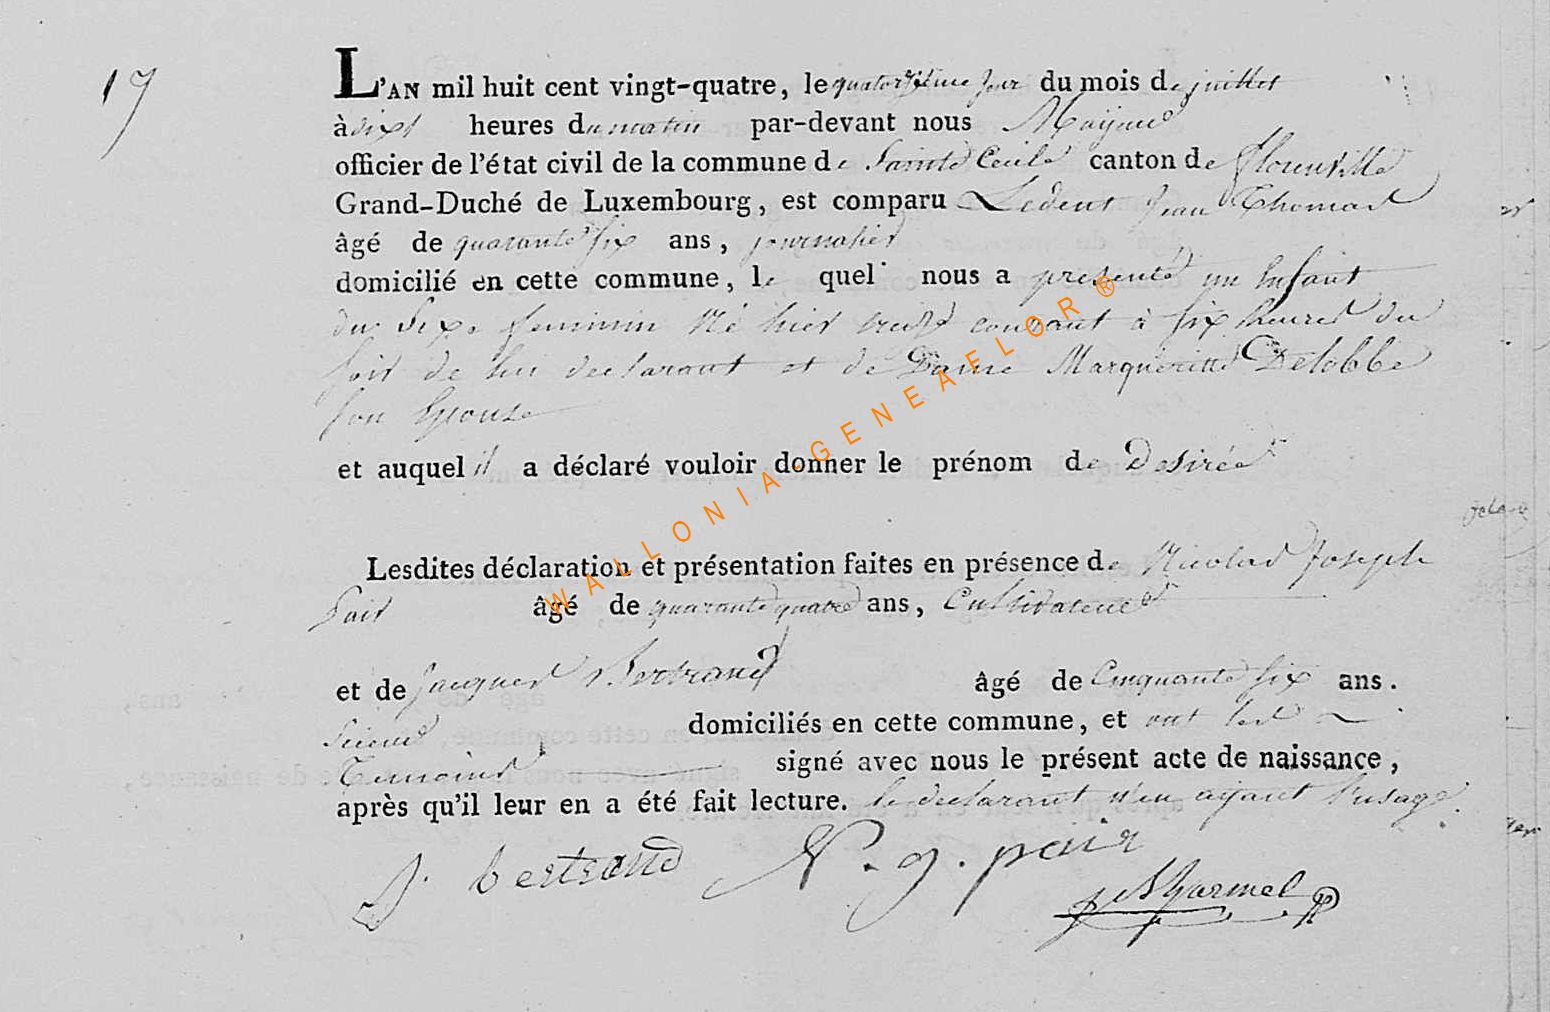 17
L'AN mil huit cent vingt-quatre, le quatorzième jour du mois de juillet
à six heures du matin par-devant nous Mayeur
officier de l'état civil de la commune de Sainte Cecile canton de florenville
Grand-Duché de Luxembourg, est comparu Ledent Jean Thomas
âgé de quarante six ans, journalier
domicilié en cette commune, le quel nous a presenté un Enfant
du Sexe feminin Né hier treize courant à six heures du
soir de lui declarant et de Dame Margueritte Delobbe
son Epouse
et auquel il a déclaré vouloir donner le prénom de Desirée
Lesdites déclaration et présentation faites en présence de Nicolas Joseph
Pair âgé de quarante quatre ans, Cultivateur
et de Jacques Bertrand âgé de Cinquante six ans.
domiciliés en cette commune, et ont les
Temoins signé avec nous le présent acte de naissance,
après qu'il leur en a été fait lecture. le declarant n'en ayant l'usage.
J. bertrand N. j. pair
WALLONIA-GENEAFLOR®